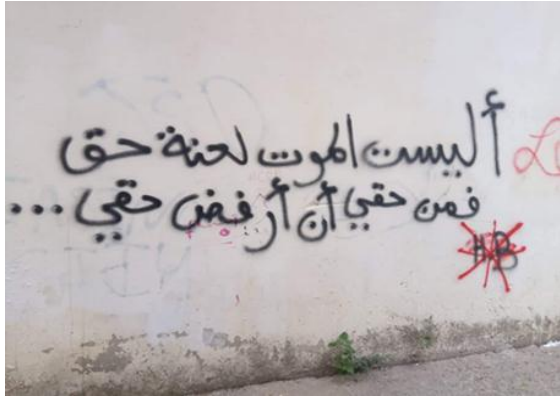 أليست الموت لعنة حق
فمن حقي أن أرفض حقي ...
HB